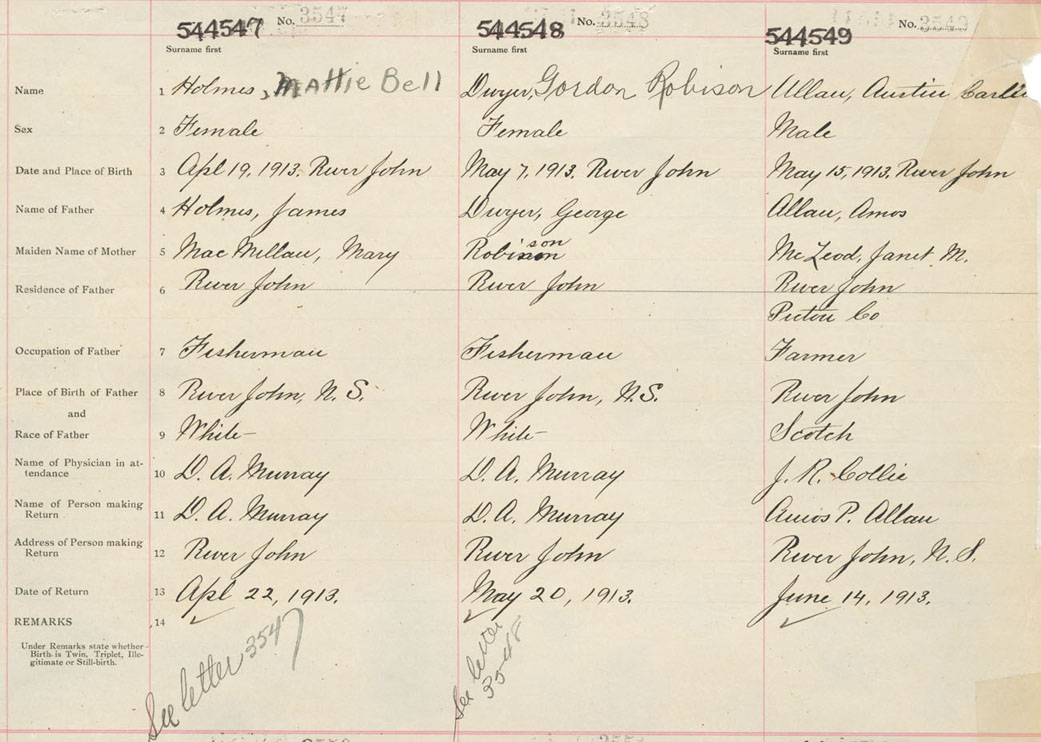 544547 No. 3547 544548 No. 3548 544549 No. 3549
Surname first Surname first Surname first
Name 1 Holmes, Mattie Bell Dwyer, Gordon Robison Allan, Austin
Sex 2 Female Female Male
Date and Place of Birth 3 Apl 19, 1913. River John May 7, 1913. River John May 15, 1913. River John
Name of Father 4 Holmes, James Dwyer, George Allan, Amos
Maiden Name of Mother 5 MacMillan, Mary Robison McLeod, Janet M.
Residence of Father 6 River John River John River John
Pictou Co
Occupation of Father 7 Fisherman Fisherman Farmer
Place of Birth of Father 8 River John, N.S. River John, N.S. River John
and
Race of Father 9 White White Scotch
Name of Physician in at-
tendance 10 D. A. Murray D. A. Murray J. R. Collie
Name of Person making
Return 11 D. A. Murray D. A. Murray Amos P. Allan
Address of Person making
Return 12 River John River John River John, N.S.
Date of Return 13 Apl 22, 1913. May 20, 1913. June 14, 1913.
REMARKS 14
Under Remarks state whether
Birth is Twin, Triplet, Ille-
gitimate or Still-birth.
See letter 3547
See letter
3548